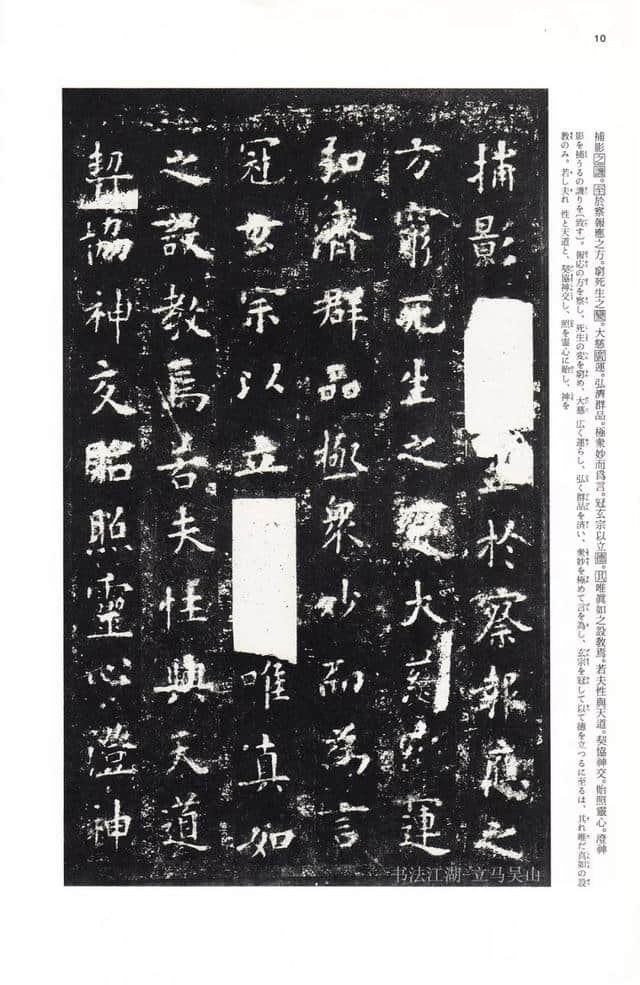 10
捕影之譏。至於察報應之方。窮死生之變。大慈廣運。弘濟群品。極衆妙而爲言。冠玄宗以立德。其唯眞如之設敎焉。若夫性與天道。契協神交。貽照靈心。澄神
影を捕うるの譏りを〔致す〕。報応の方を察し、死生の変を窮め、大慈 広く運らし、弘く群品を済い、衆妙を極めて言を為し、玄宗を冠して以て徳を立つるに至るは、其れ唯だ真如の設
教のみ。若し夫れ 性と天道と、契協神交し、照を靈心に貽し、神を
捕影 至於察報應之
方窮死生之變大慈廣運
弘濟群品極衆妙而為言
冠玄宗以立 唯真如
之設教焉若夫性與天道
契協神交貽照靈心澄神
书法江湖-立马吴山